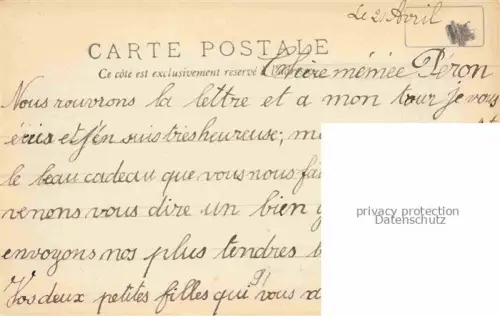 Le 21 Avril
CARTE POSTALE
Ce côté est exclusivement réservé
Chère mémée Péron
Nous rouvrons la lettre et a mon tour je vous
écris et j'en suis tres heureuse,
le beau cadeau que vous nous
venons vous dire un bien
envoyons nos plus tendres
Vos deux petites filles qui vous
privacy protection
Datenschutz